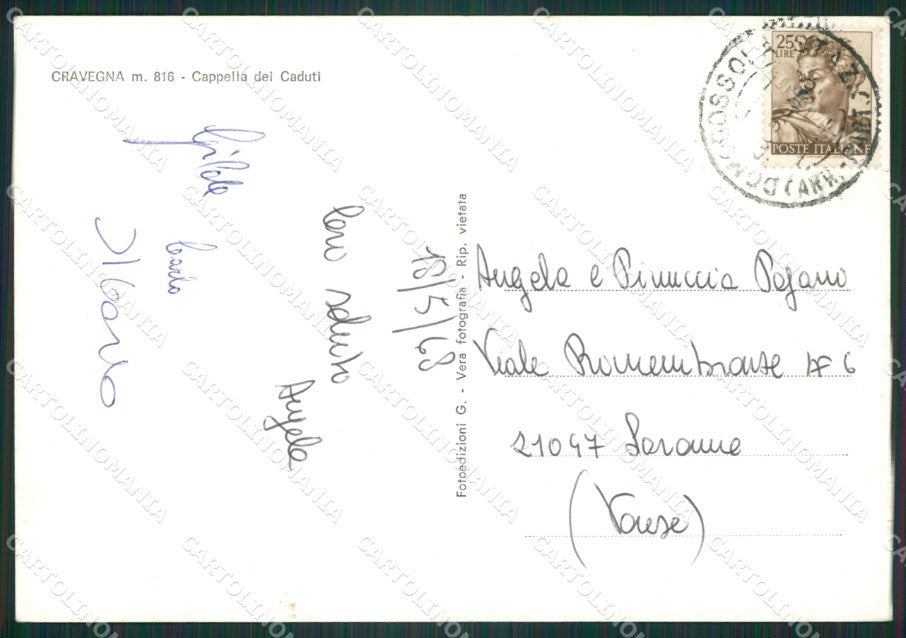 CRAVEGNA m. 816 - Cappella dei Caduti
Gilda
Carla
18/5/68
Caro saluto
Angela
Fotoedizioni G. - Vera fotografia - Rip. vietata
25
LIRE
POSTE ITALIANE
DOMODOSSOLA STAZ
(ARR.
Angela e Pinuccia Pagano
Viale Rimembranze
6
21047 Saronno
(Varese)
CARTOLINOMANIA